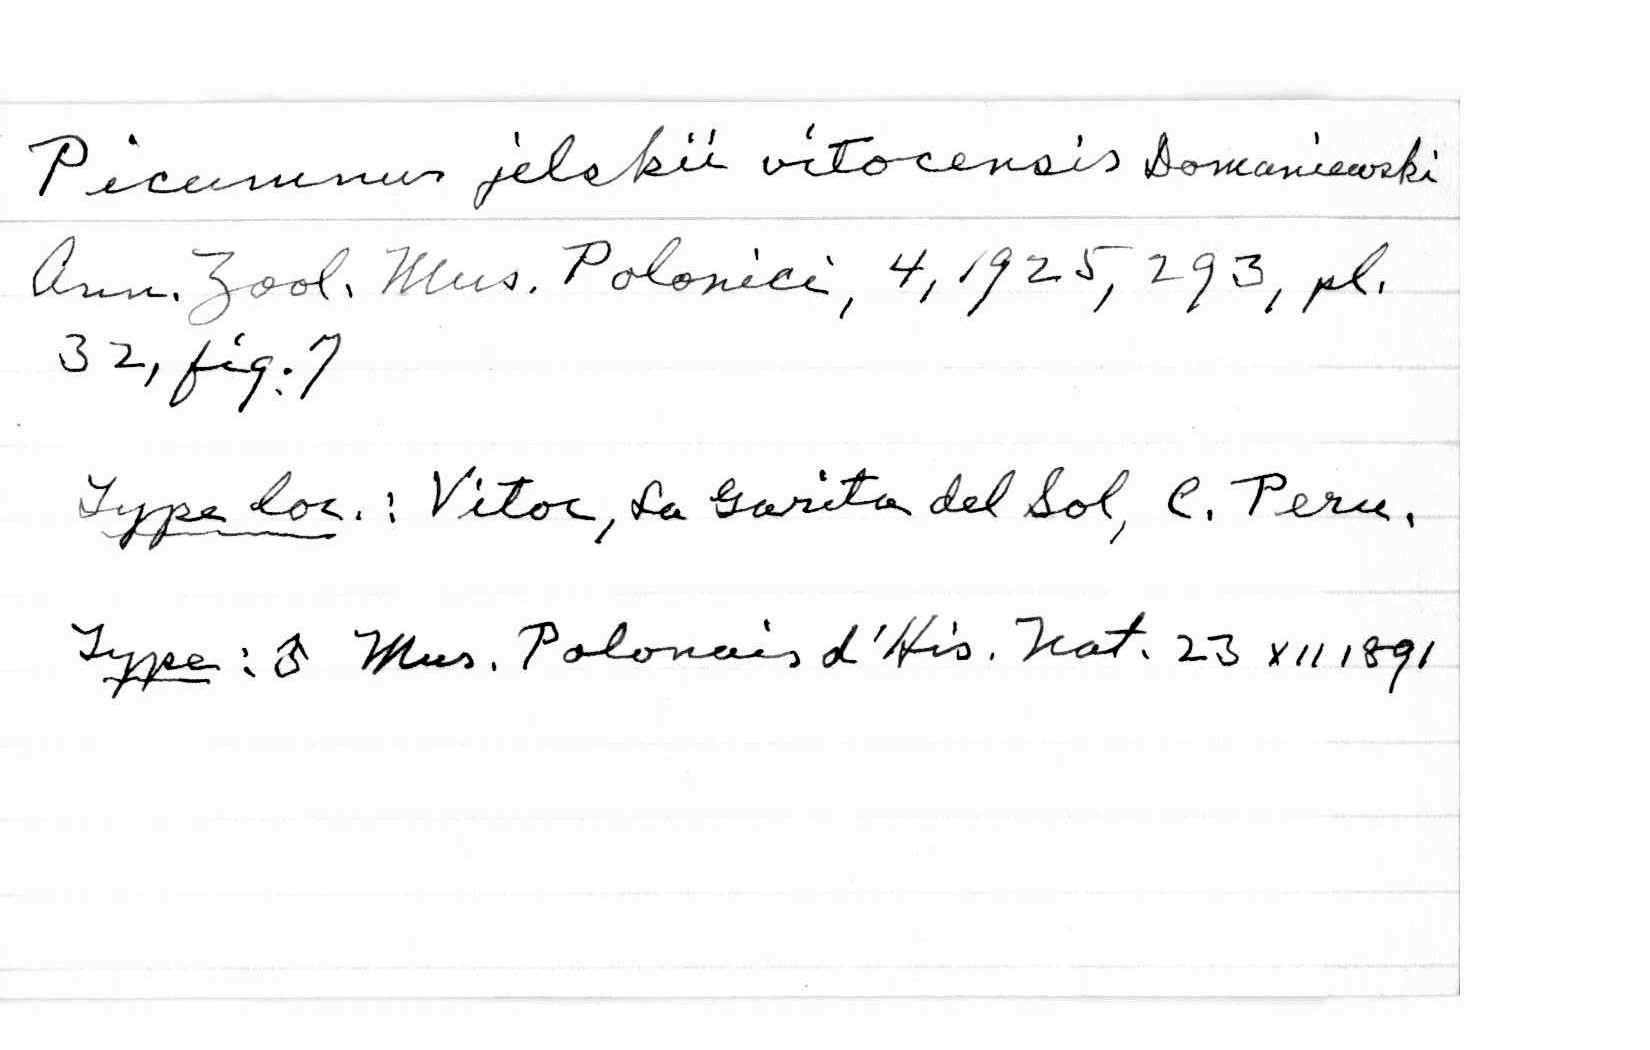 Picumnus jelskii vitocensis Domaniewski
Ann. Zool. Mus. Polonici, 4, 1925, 293, pl.
32, fig. 7
Type loc.: Vitoc, La Garita del Sol, C. Peru.
Type: ♂ Mus. Polonais d'His. Nat. 23 XII 1891